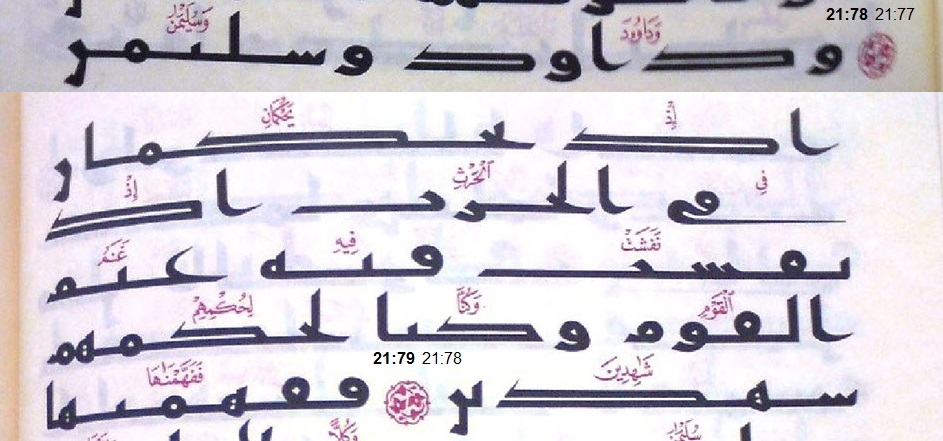 21:78 21:77
وَدَاوُودَ وَسُلَيْمَٰنَ
وداود وسليمن
إِذْ يَحْكُمَانِ
اذ يحكمان
فِي ٱلْحَرْثِ إِذْ
في الحرث اذ
نَفَشَتْ فِيهِ غَنَمُ
نفشت فيه غنم
ٱلْقَوْمِ وَكُنَّا لِحُكْمِهِمْ
القوم وكنا لحكمهم
21:79 21:78
شَٰهِدِينَ فَفَهَّمْنَٰهَا
شهدين ففهمنها
سُلَيْمَٰنَ وَكُلًّا